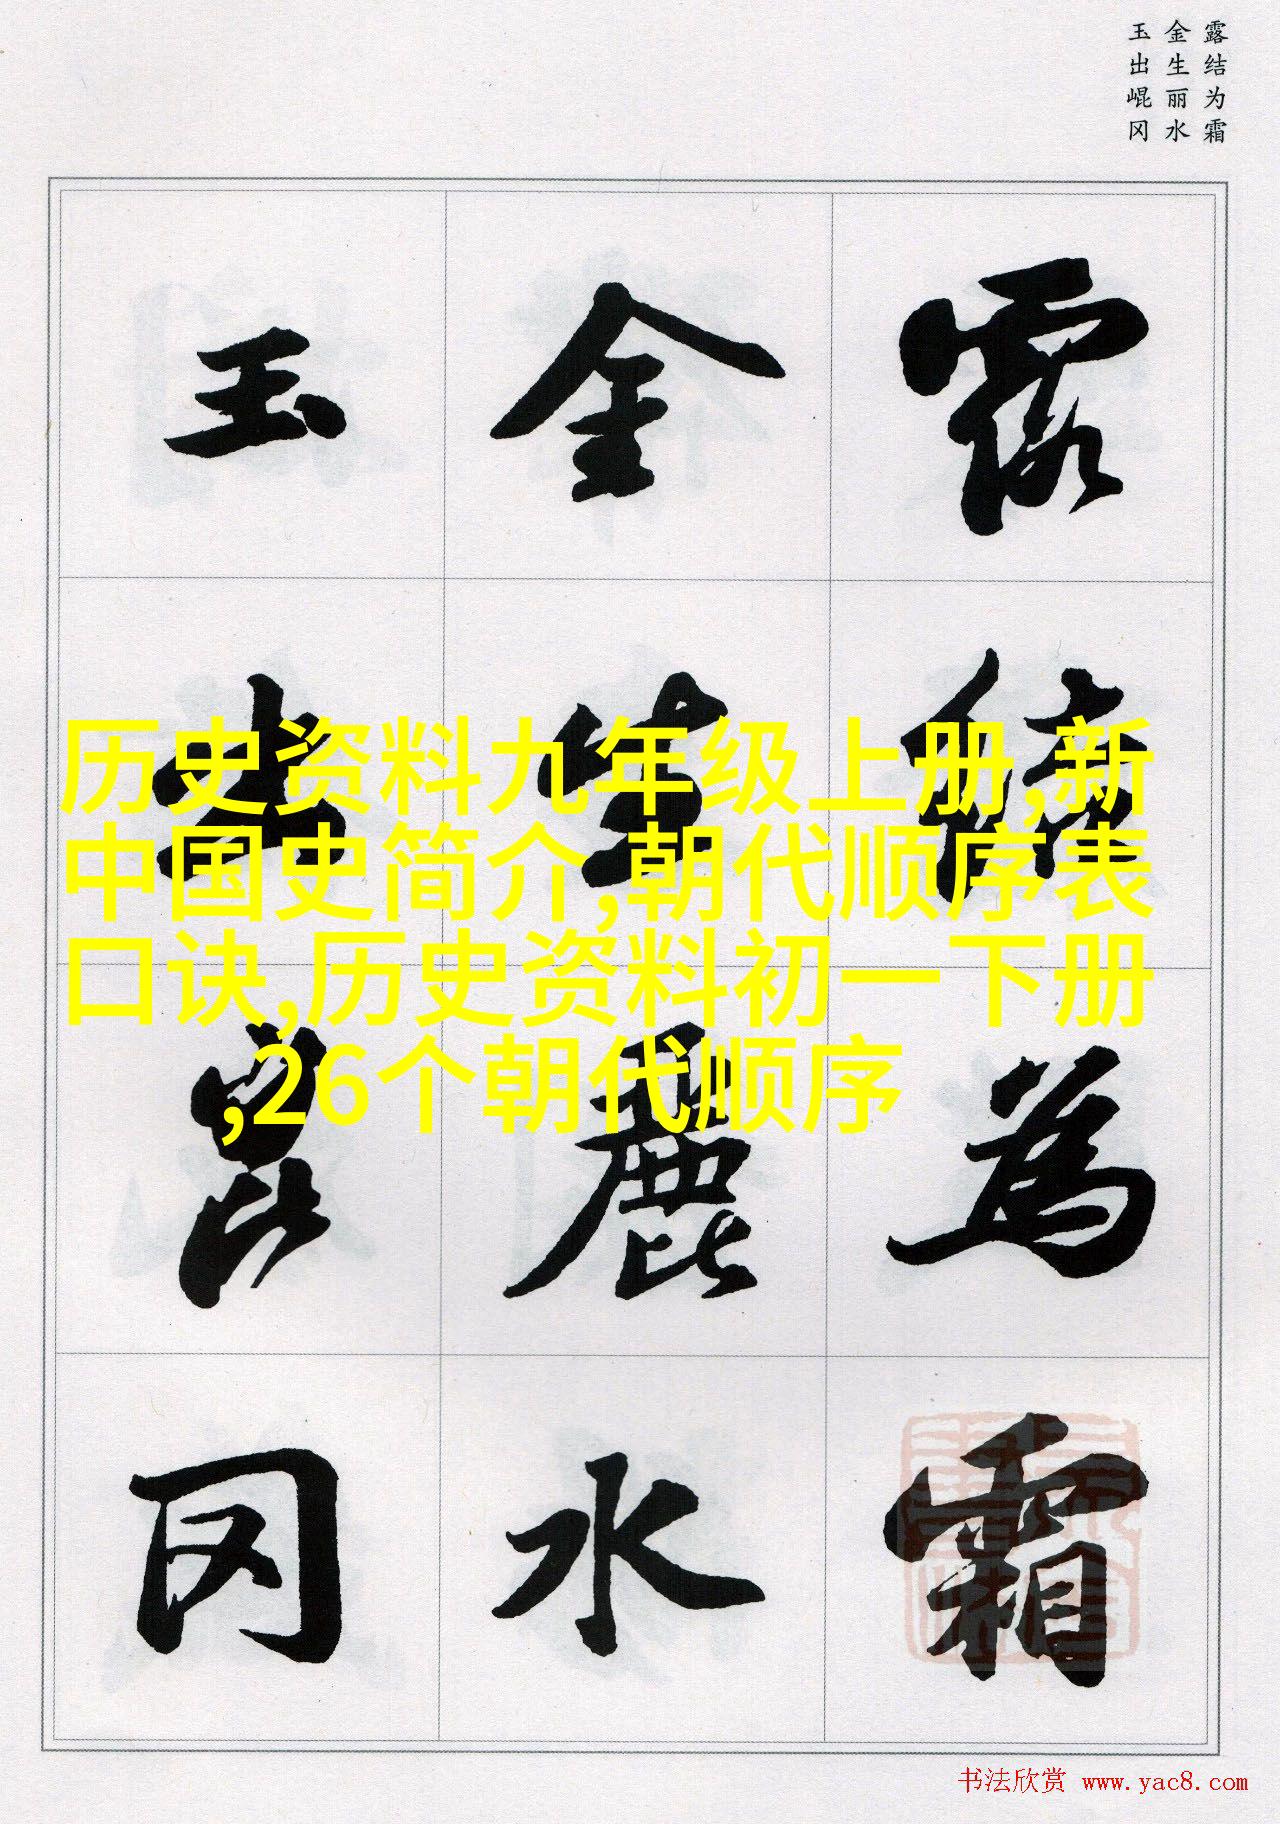 露结为霜
金生丽水
玉出崐冈
露結為霜
金生麗水
玉出崑冈
历史资料九年级上册,新
中国史简介,朝代顺序表
口诀,历史资料初一下册
,26个朝代顺序
书法欣赏 www.yac8.com